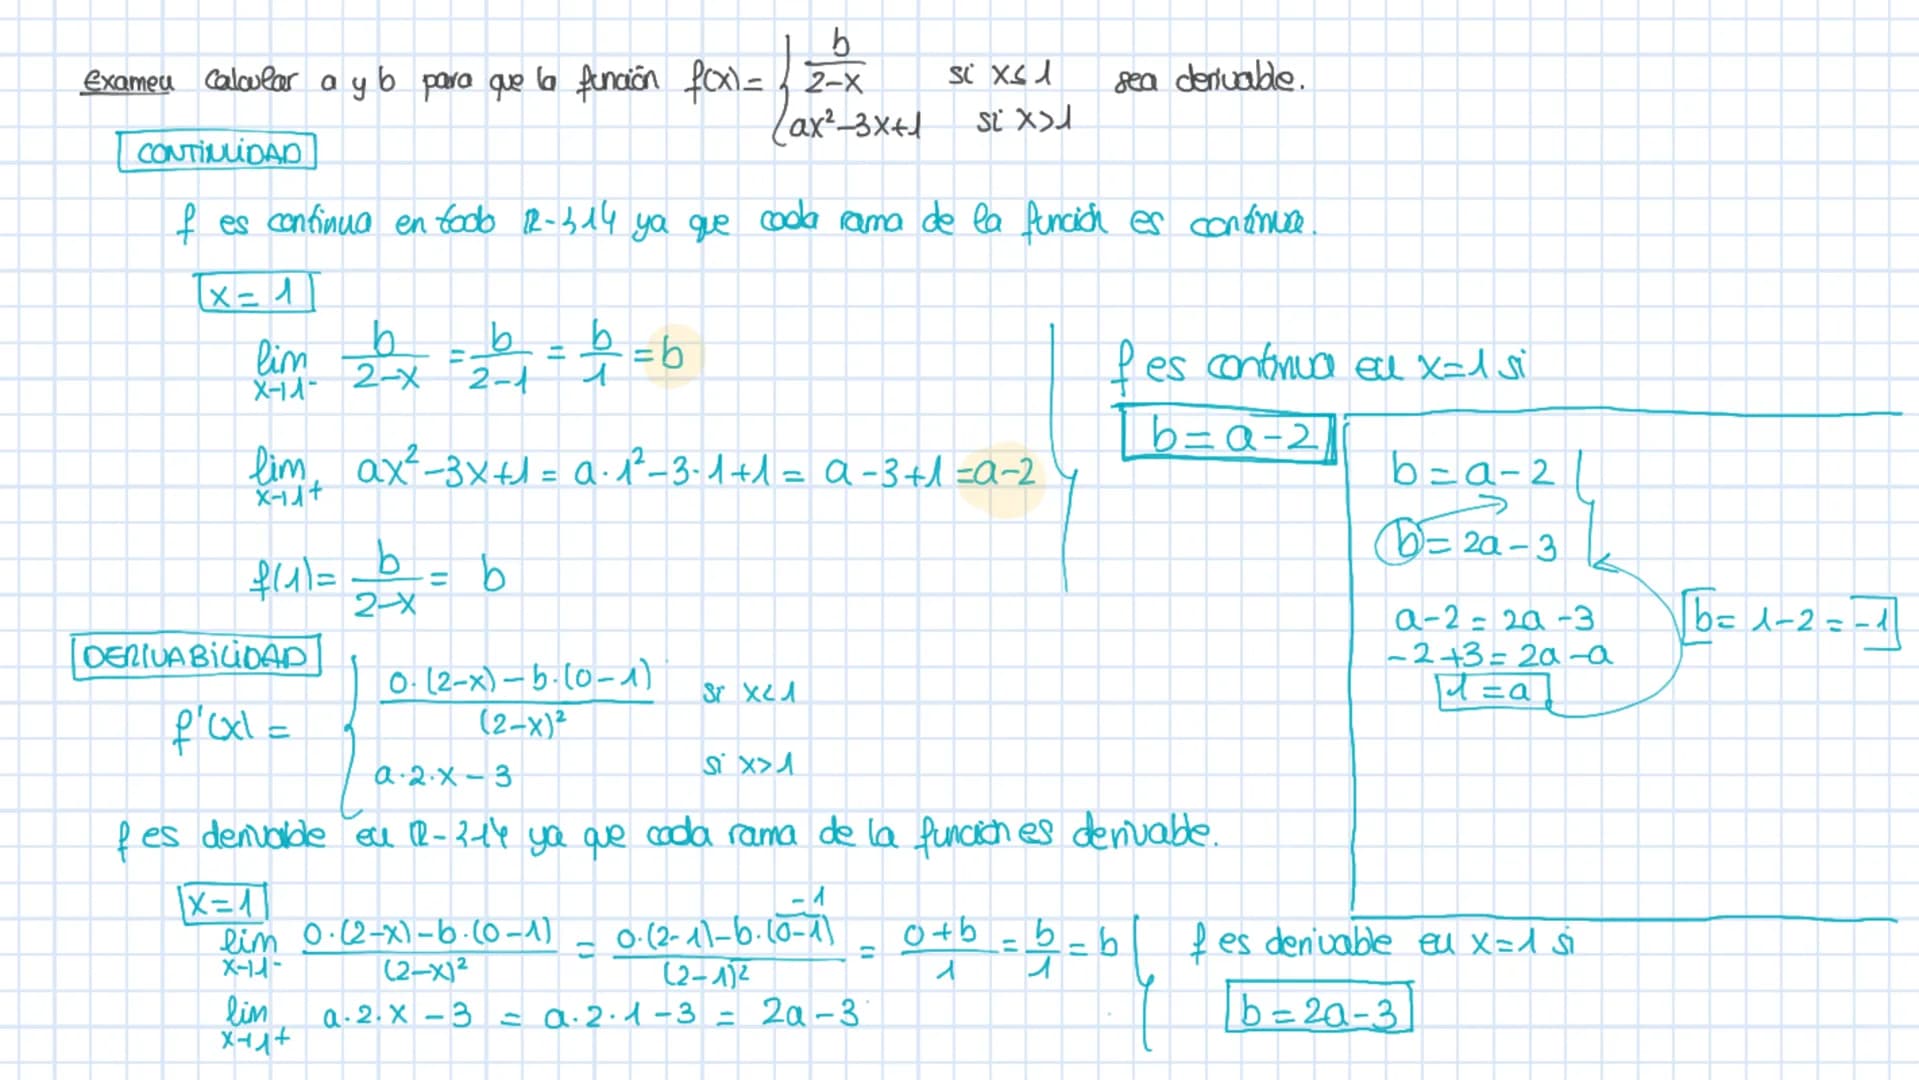 Examen Calcular a y b para que la función f(x)= { b/(2-x) si x≤1 sea derivable.
ax²-3x+1 si x>1
CONTINUIDAD
f es continua en todo ℝ-{1} ya que cada rama de la función es continua.
x=1
lim x→1⁻ b/(2-x) = b/(2-1) = b/1 = b
lim x→1⁺ ax²-3x+1 = a·1²-3·1+1 = a-3+1 =a-2
f(1)= b/(2-x) = b
f es continua en x=1 si
b=a-2
b=a-2
b=2a-3
a-2=2a-3
-2+3=2a-a
1=a
b= 1-2=-1
DERIVABILIDAD
f'(x)= { (0·(2-x)-b·(0-1))/(2-x)² si x<1
a·2·x-3 si x>1
f es derivable en ℝ-{1} ya que cada rama de la función es derivable.
x=1
lim x→1⁻ (0·(2-x)-b·(0-1))/(2-x)² = (0·(2-1)-b·(0-1))/(2-1)² = (0+b)/1 = b/1 = b
-1
lim x→1⁺ a·2·x-3 = a·2·1-3 = 2a-3
f es derivable en x=1 si
b=2a-3